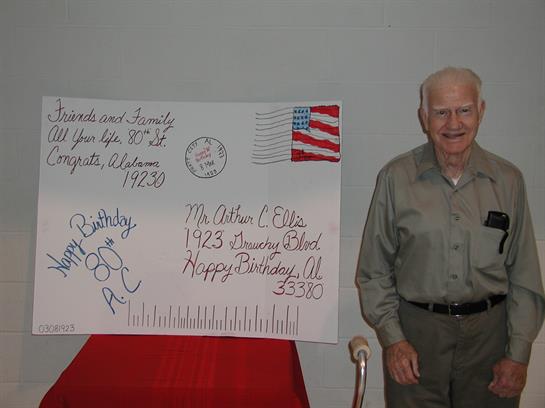 Friends and Family
All Your life, 80th St.
Congrats, Alabama
19230
Happy Birthday
80th
A.C
Mr. Arthur C. Ellis
1923 Grouchy Blvd.
Happy Birthday, Al
33380
03081923